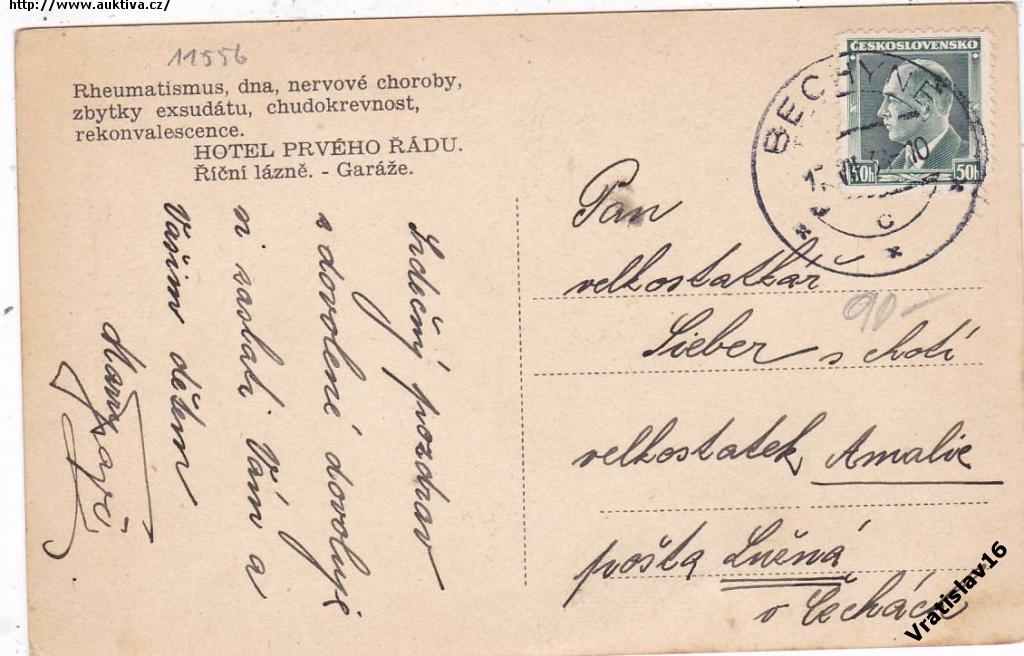 http://www.auktiva.cz/
11556
Rheumatismus, dna, nervové choroby,
zbytky exsudátu, chudokrevnost,
rekonvalescence.
HOTEL PRVÉHO ŘÁDU.
Říční lázně. - Garáže.
Srdečný pozdrav
s dovolené dovoluje
si zaslati Vám a
Vašim dětem
ČESKOSLOVENSKO
50h 50h
BECHYNĚ
10
c
Pan
velkostatkář
Sieber s chotí
90-
velkostatek Amalie
pošta Lužná
v Čechách
Vratislav16